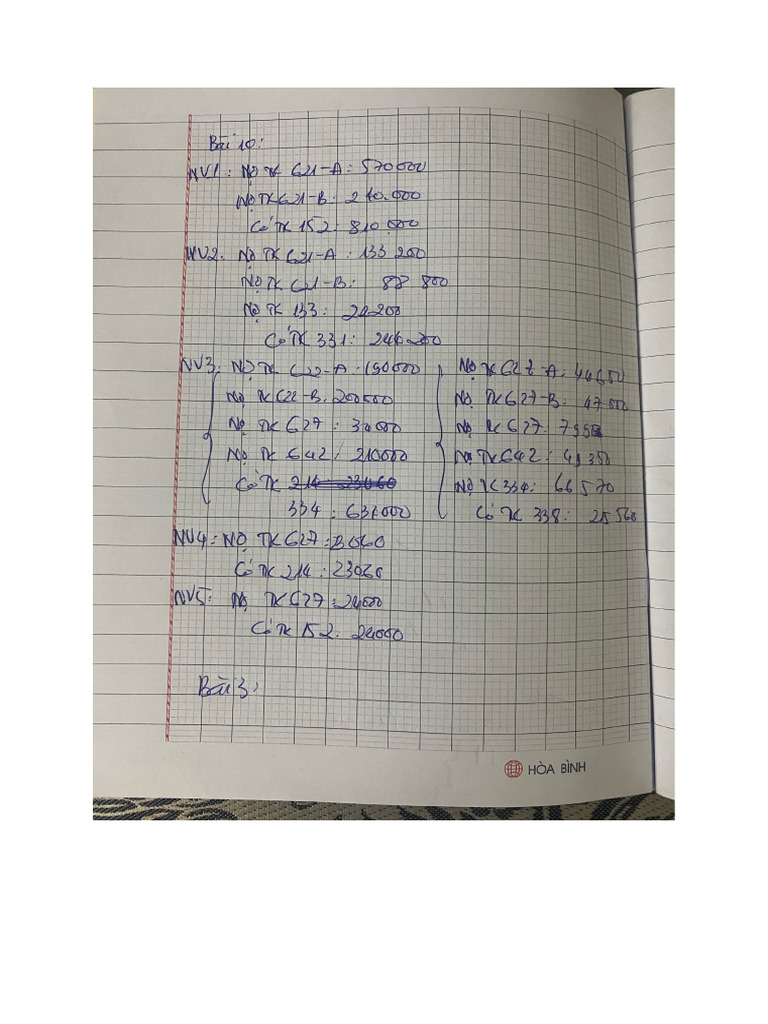 Bài 10:
NV1: Nợ TK 621-A: 570000
Nợ TK 621-B: 240.000
Có TK 152: 810 000
NV2: Nợ TK 621-A: 133 200
Nợ TK 621-B: 88 800
Nợ TK 133: 24200
Có TK 331: 246 200
NV3: Nợ TK 622-A: 190000
Nợ TK 622-B: 200000
Nợ TK 627: 34000
Nợ TK 642: 210000
Có TK
334: 634000
Nợ TK 622-A: 44650
Nợ TK 627-B: 47 000
Nợ TK 627:
Nợ TK 642: 49 350
Nợ TK 334: 66 570
Có TK 338:
NV4: Nợ TK 627: 23060
Có TK 214: 23060
NV5: Nợ TK 627: 24000
Có TK 152: 24000
Bài 3:
HÒA BÌNH